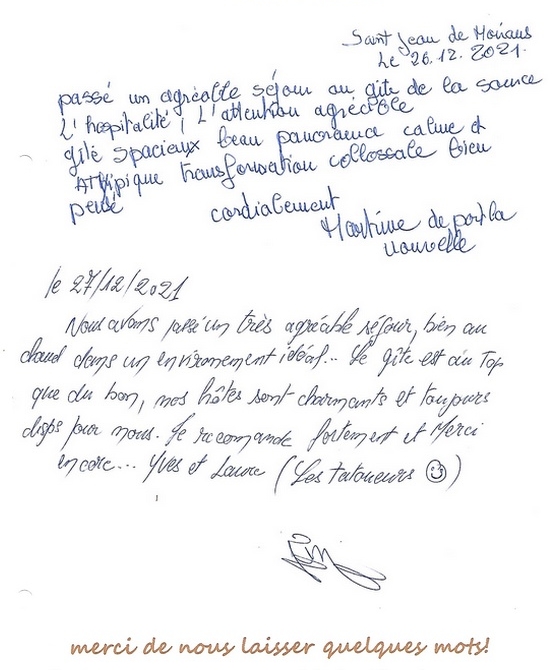 Saint Jean de Moirans
Le 26.12.2021.
passé un agréable séjour au gite de la source
L'hospitalité, L'attention agréable
gité spacieux beau panorama calme et
Atypique transformation collossale bien
pensé cordialement
Martine de port la
nouvelle
le 27/12/2021
Nous avons passé un très agréable séjour, bien au
chaud dans un environement idéal... Le gîte est au Top
que du bon, nos hôtes sont charmants et toujours
dispos pour nous. Je recomande fortement et Merci
encore... Yves et Laure (Les tatoueurs ☺)
merci de nous laisser quelques mots!